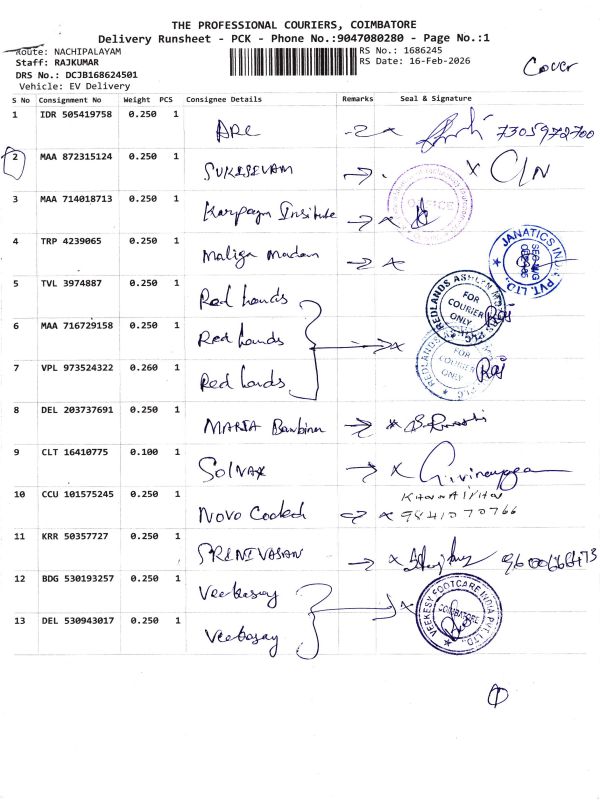 THE PROFESSIONAL COURIERS, COIMBATORE
Delivery Runsheet - PCK - Phone No.:9047080280 - Page No.:1
Route: NACHIPALAYAM
RS No.: 1686245
Staff: RAJKUMAR
RS Date: 16-Feb-2026
Cover
DRS No.: DCJB168624501
Vehicle: EV Delivery
S No Consignment No Weight PCS Consignee Details Remarks Seal & Signature
1 IDR 505419758 0.250 1 7305972700
2 MAA 872315124 0.250 1
3 MAA 714018713 0.250 1 Karpagm Institute OFFICE
4 TRP 4239065 0.250 1 JANATICS INDIA PVT. LTD.
5 TVL 3974887 0.250 1 Red lands REDLANDS ASHLYN MOTORS FOR COURIER ONLY Raj
6 MAA 716729158 0.250 1 Red lands
7 VPL 973524322 0.260 1 Red lands REDLANDS FOR COURIER ONLY Raj
8 DEL 203737691 0.250 1 MARIA
9 CLT 16410775 0.100 1 Solnax
10 CCU 101575245 0.250 1 Novo 9841070766
11 KRR 50357727 0.250 1 SRENIVASAN
12 BDG 530193257 0.250 1 Veekesay VEEKESY FOOTCARE INDIA PVT. LTD. COIMBATORE
13 DEL 530943017 0.250 1 Veekesay